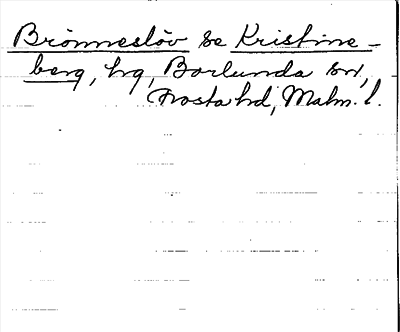 Brönneslöv se Kristine-
berg, hg, Borlunda sn,
Frosta hd, Malm. l.